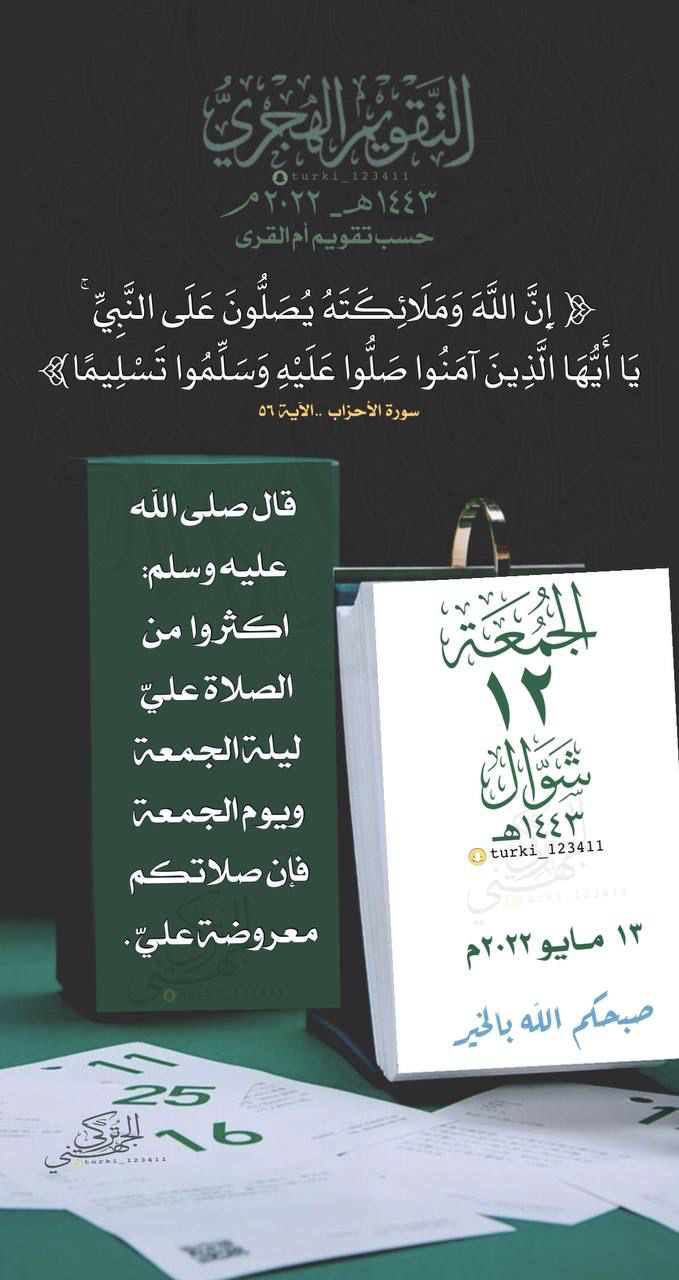 التَّقْوِيمُ الهِجْرِيُّ
turki_123411
١٤٤٣هـ _ ٢٠٢٢م
حسب تقويم أم القرى
﴿ إِنَّ اللَّهَ وَمَلَائِكَتَهُ يُصَلُّونَ عَلَى النَّبِيِّ ۚ
يَا أَيُّهَا الَّذِينَ آمَنُوا صَلُّوا عَلَيْهِ وَسَلِّمُوا تَسْلِيمًا ﴾
سورة الأحزاب ..الآية ٥٦
قال صلى الله
عليه وسلم:
اكثروا من
الصلاة عليّ
ليلة الجمعة
ويوم الجمعة
فإن صلاتكم
معروضة عليّ.
الجُمُعَة
١٢
شَوَّال
١٤٤٣هـ
turki_123411
turki_123411
١٣ مايو ٢٠٢٢م
صبحكم الله بالخير
11
25
16
التركي
الجهني
turki_123411